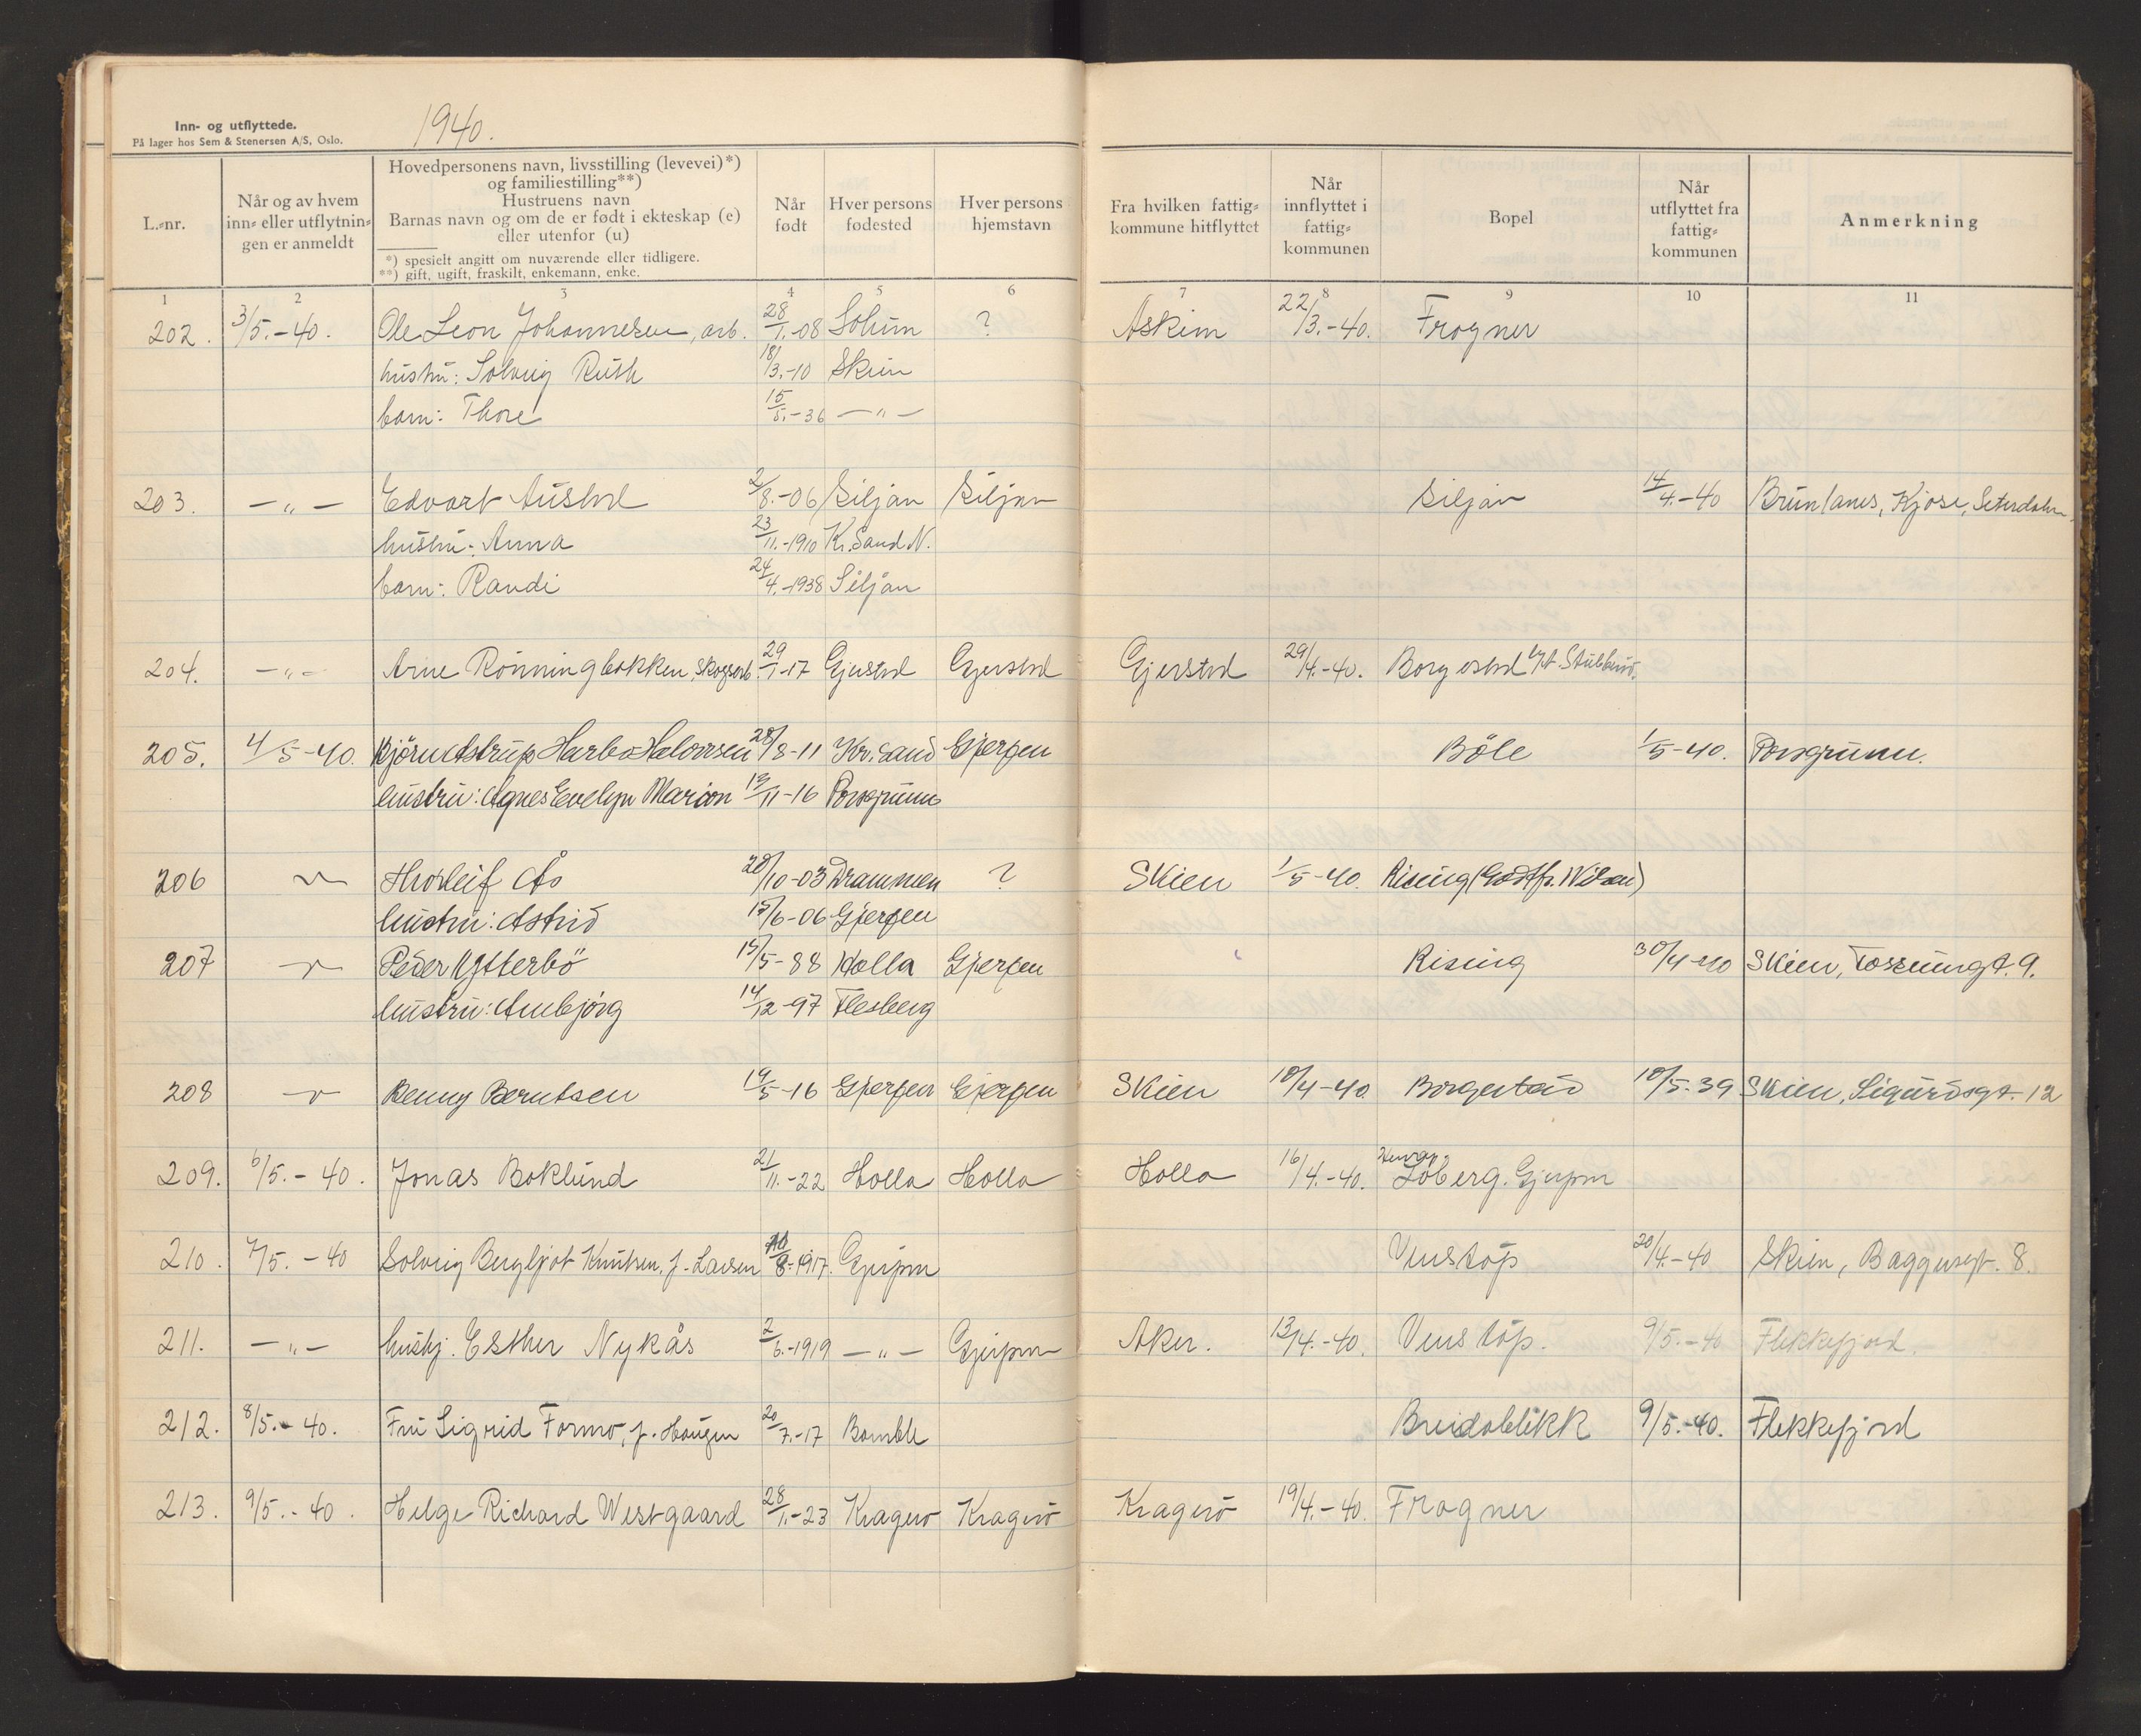 Inn- og utflyttede.
På lager hos Sem & Stenersen A/S, Oslo.
1940.
L.-nr.
Når og av hvem inn- eller utflytningen er anmeldt
Hovedpersonens navn, livsstilling (levevei)*)
og familiestilling**)
Hustruens navn
Barnas navn og om de er født i ekteskap (e)
eller utenfor (u)
*) spesielt angitt om nuværende eller tidligere.
**) gift, ugift, fraskilt, enkemann, enke.
Når født
Hver persons fødested
Hver persons hjemstavn
Fra hvilken fattigkommune hitflyttet
Når innflyttet i fattigkommunen
Bopel
Når utflyttet fra fattigkommunen
Anmerkning
1 2 3 4 5 6 7 8 9 10 11
202. 3/5.-40. Ole Leon Johannesen, arb. 28/1.-08 Solum ? Askim 22/3.-40. Frogner
hustru: Solveig Ruth 18/3.-10 Skien
barn: Thore 15/5.-36 -"-
203. -"- Edvart Austad 2/8.-06 Siljan Siljan Siljan 14/4.-40 Brunlanes, Kjose, Seterdalen
hustru: Anna 23/11.-1910 Kr.Sand N.
barn: Randi 24/4.-1938 Siljan
204. -"- Arne Rönningbakken, skogsarb. 29/1-17 Gjerstad Gjerstad Gjerstad 29/4.-40. Borgestad
205. 4/5-40. Bjørn Astrup Harbo Halvorsen 28/8-11 Kr.sand Gjerpen Böle 1/5-40. Porsgrunn.
hustru: Agnes Evelyn Marion 13/11-16 Porsgrunn
206 Thorleif Ås 20/10-03 Drammen ? Skien 1/5-40. Rising (Godtfr. Nilsen)
hustru: Astrid 15/6-06 Gjerpen
207 Peder Ytterbö 15/5-88 Holla Gjerpen Rising 30/4-40 Skien, Torsningt. 9.
hustru: Ambjörg 14/12-97 Flesberg
208 Benny Berntsen 19/5-16 Gjerpen Gjerpen Skien 10/4-40 Borgestad 10/5-39 Skien, Sigurdsgt. 12
209. 6/5.-40. Jonas Boklund 21/11.-22 Holla Holla Holla 16/4.-40. Löberg. Gjerpen
210. 7/5.-40 Solveig Bergljot Knutsen, f. Larsen 8-1917. Gjerpen Venstöp 20/4.-40 Skien, Baggeregt. 8.
211. -"- hushj. Esther Nykås 2/6.-1919 -"- Gjerpen Aker. 13/4.-40. Venstöp. 9/5.-40 Flekkefjord.
212. 8/5.-40. Fru Sigrid Formo, f. Haugen 20/7.-17 Bamble Breidablikk 9/5.-40. Flekkefjord
213. 9/5.-40. Helge Richard Westgaard 28/1.-23 Kragerö Kragerö Kragerö 19/4.-40. Frogner